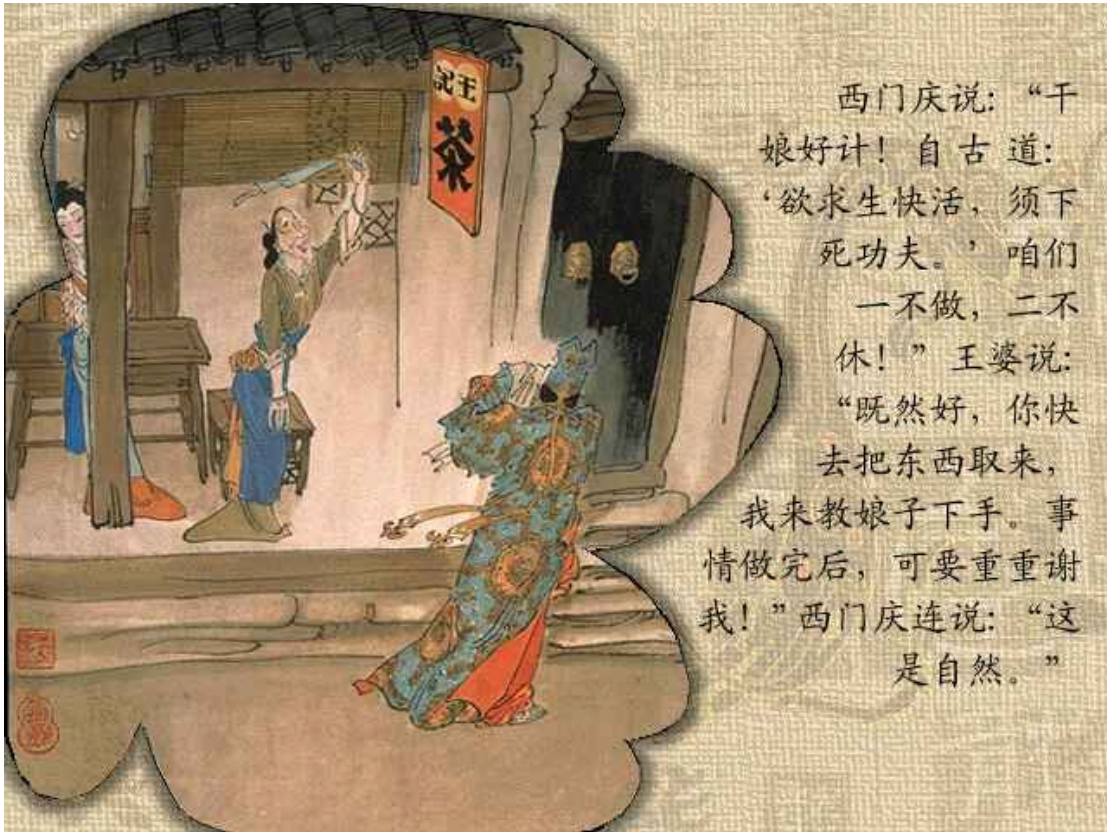 王記
茶
西门庆说：“干
娘好计！自古道：
‘欲求生快活，须下
死功夫。’咱们
一不做，二不
休！”王婆说：
“既然好，你快
去把东西取来，
我来教娘子下手。事
情做完后，可要重重谢
我！”西门庆连说：“这
是自然。”